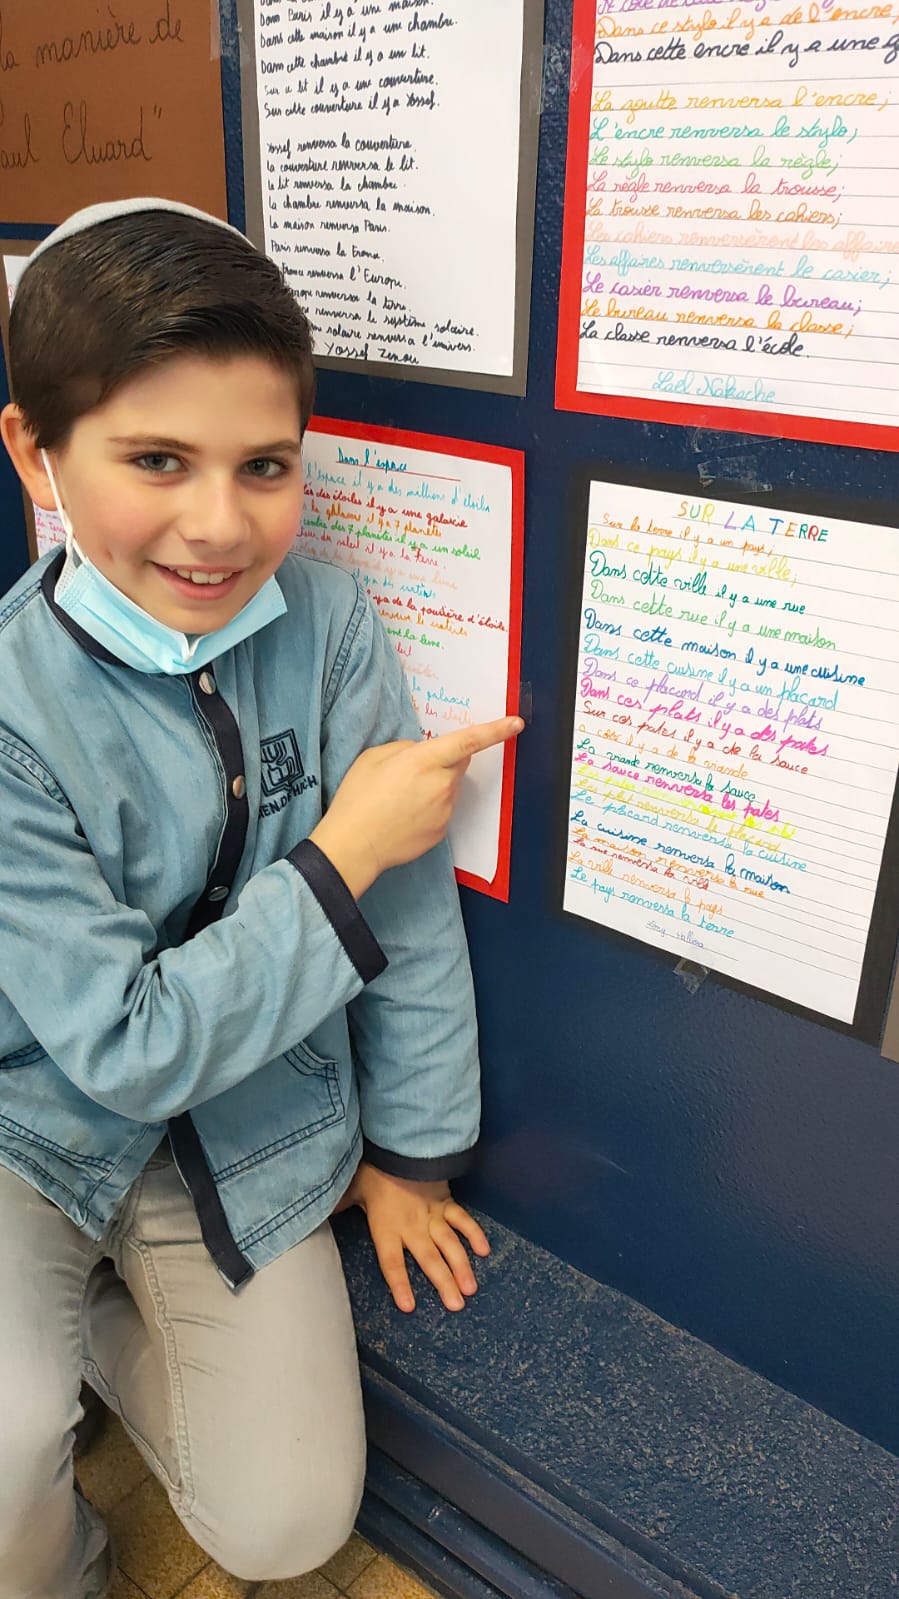 la manière de
Paul Eluard"
Dans Paris il y a une maison.
Dans cette maison il y a une chambre.
Dans cette chambre il y a un lit.
Sur ce lit il y a une couverture.
Sur cette couverture il y a Yossef.
Yossef renversa la couverture.
La couverture renversa le lit.
Le lit renversa la chambre.
La chambre renversa la maison.
La maison renversa Paris.
Paris renversa la France.
France renversa l'Europe.
renversa la terre.
renversa le système solaire.
solaire renversa l'univers.
Yossef Zenou
Dans ce stylo il y a de l'encre,
Dans cette encre il y a une g
La goutte renversa l'encre;
L'encre renversa le stylo;
Le stylo renversa la règle;
La règle renversa la trousse;
La trousse renversa les cahiers;
Les cahiers renversèrent les affaires
Les affaires renversèrent le casier;
Le casier renversa le bureau;
Le bureau renversa la classe;
La classe renversa l'école.
Lael Nakache
Dans l'espace
l'espace il y a des millions d'étoiles
des étoiles il y a une galaxie
il y a 7 planètes
centre des 7 planètes il y a un soleil
du soleil il y a la terre.
il y a une lune
il y a des cratères
il y a de la poussière d'étoile
la lune.
la galaxie
les étoiles
SUR LA TERRE
Sur la terre il y a un pays;
Dans ce pays il y a une ville;
Dans cette ville il y a une rue
Dans cette rue il y a une maison
Dans cette maison il y a une cuisine
Dans cette cuisine il y a un placard
Dans ce placard il y a des plats
Dans ces plats il y a des pates
Sur ces pates il y a de la sauce
a coté il y a de la viande
La viande renversa la sauce
La sauce renversa les pates
Les plat renversa le placard
Le placard renversa la cuisine
La cuisine renversa la maison
La maison renversa la rue
La rue renversa la ville
La ville renversa le pays
Le pays renversa la terre